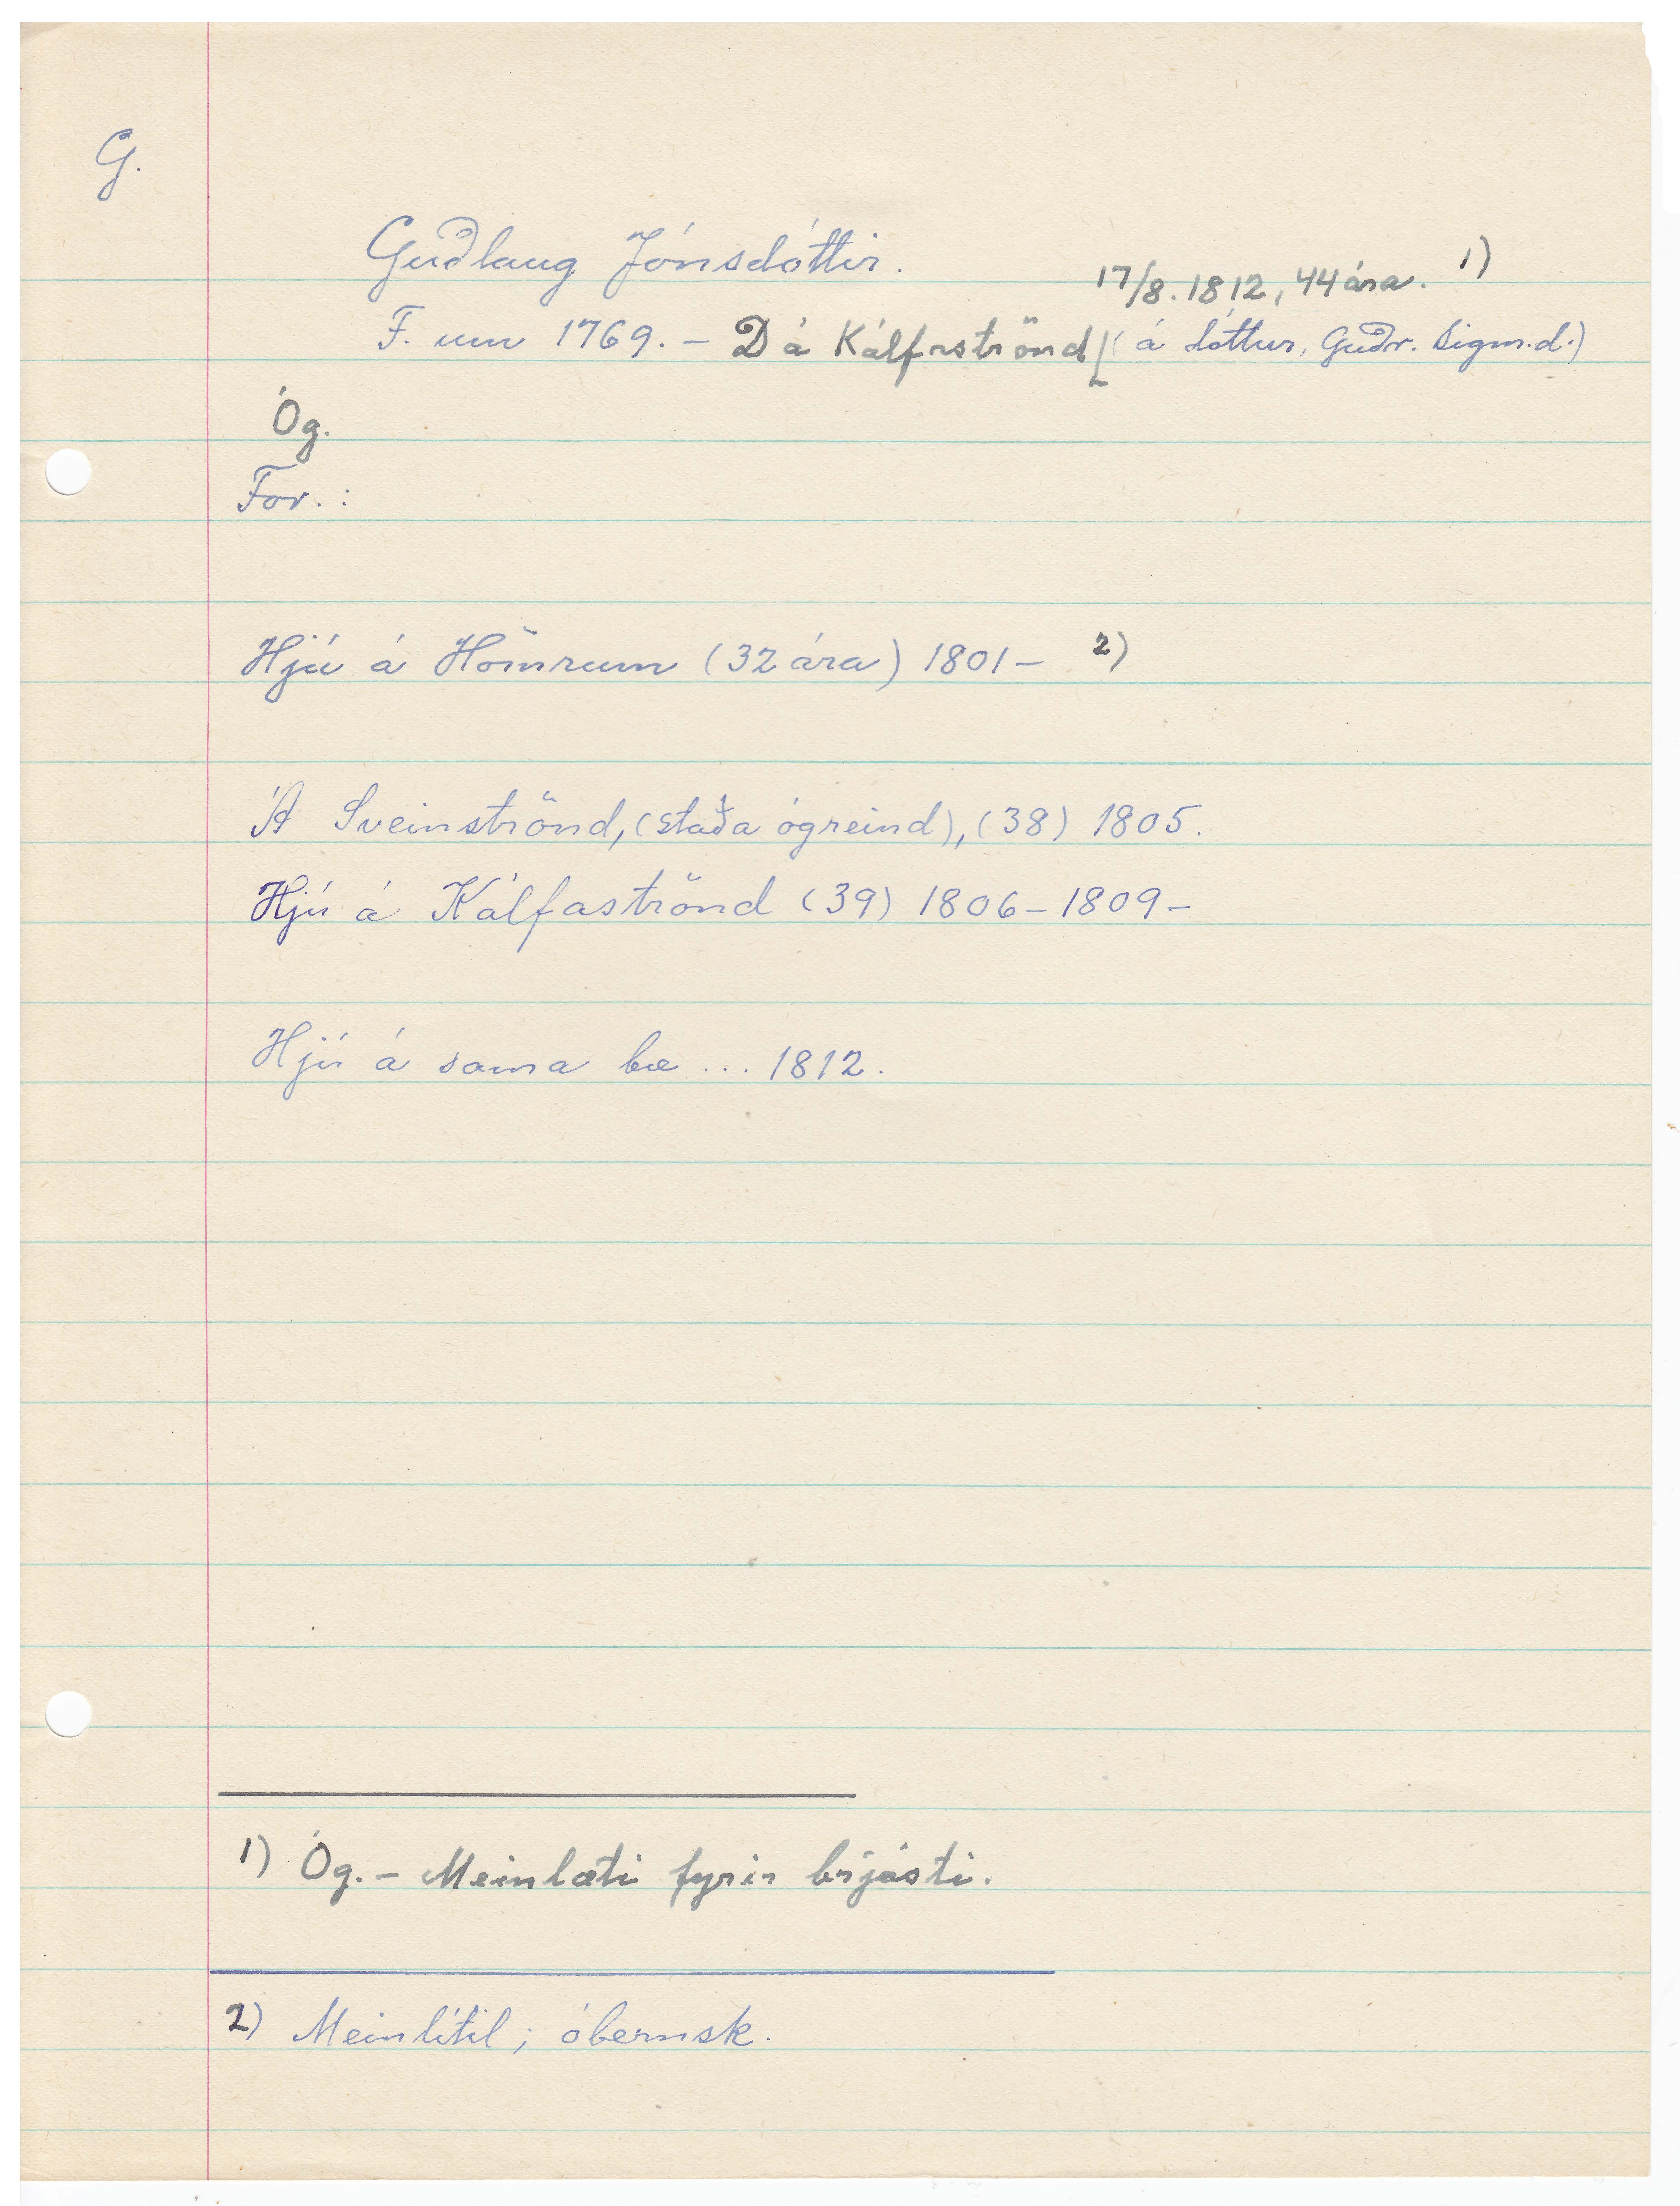 G.
Guðlaug Jónsdóttir.
17/8. 1812, 44 ára. 1)
F. um 1769. – D á Kálfaströnd (á dóttur, Guðr. Sigm.d.)
Óg.
For. :
Hjú á Hömrum (32 ára) 1801 – 2)
Á Sveinströnd, (staða ógreind), (38) 1805.
Hjú á Kálfaströnd (39) 1806 – 1809 –
Hjú á sama bæ ... 1812.
1) Óg. – Meinlæti fyrir brjósti.
2) Meinlítil; óbernsk.